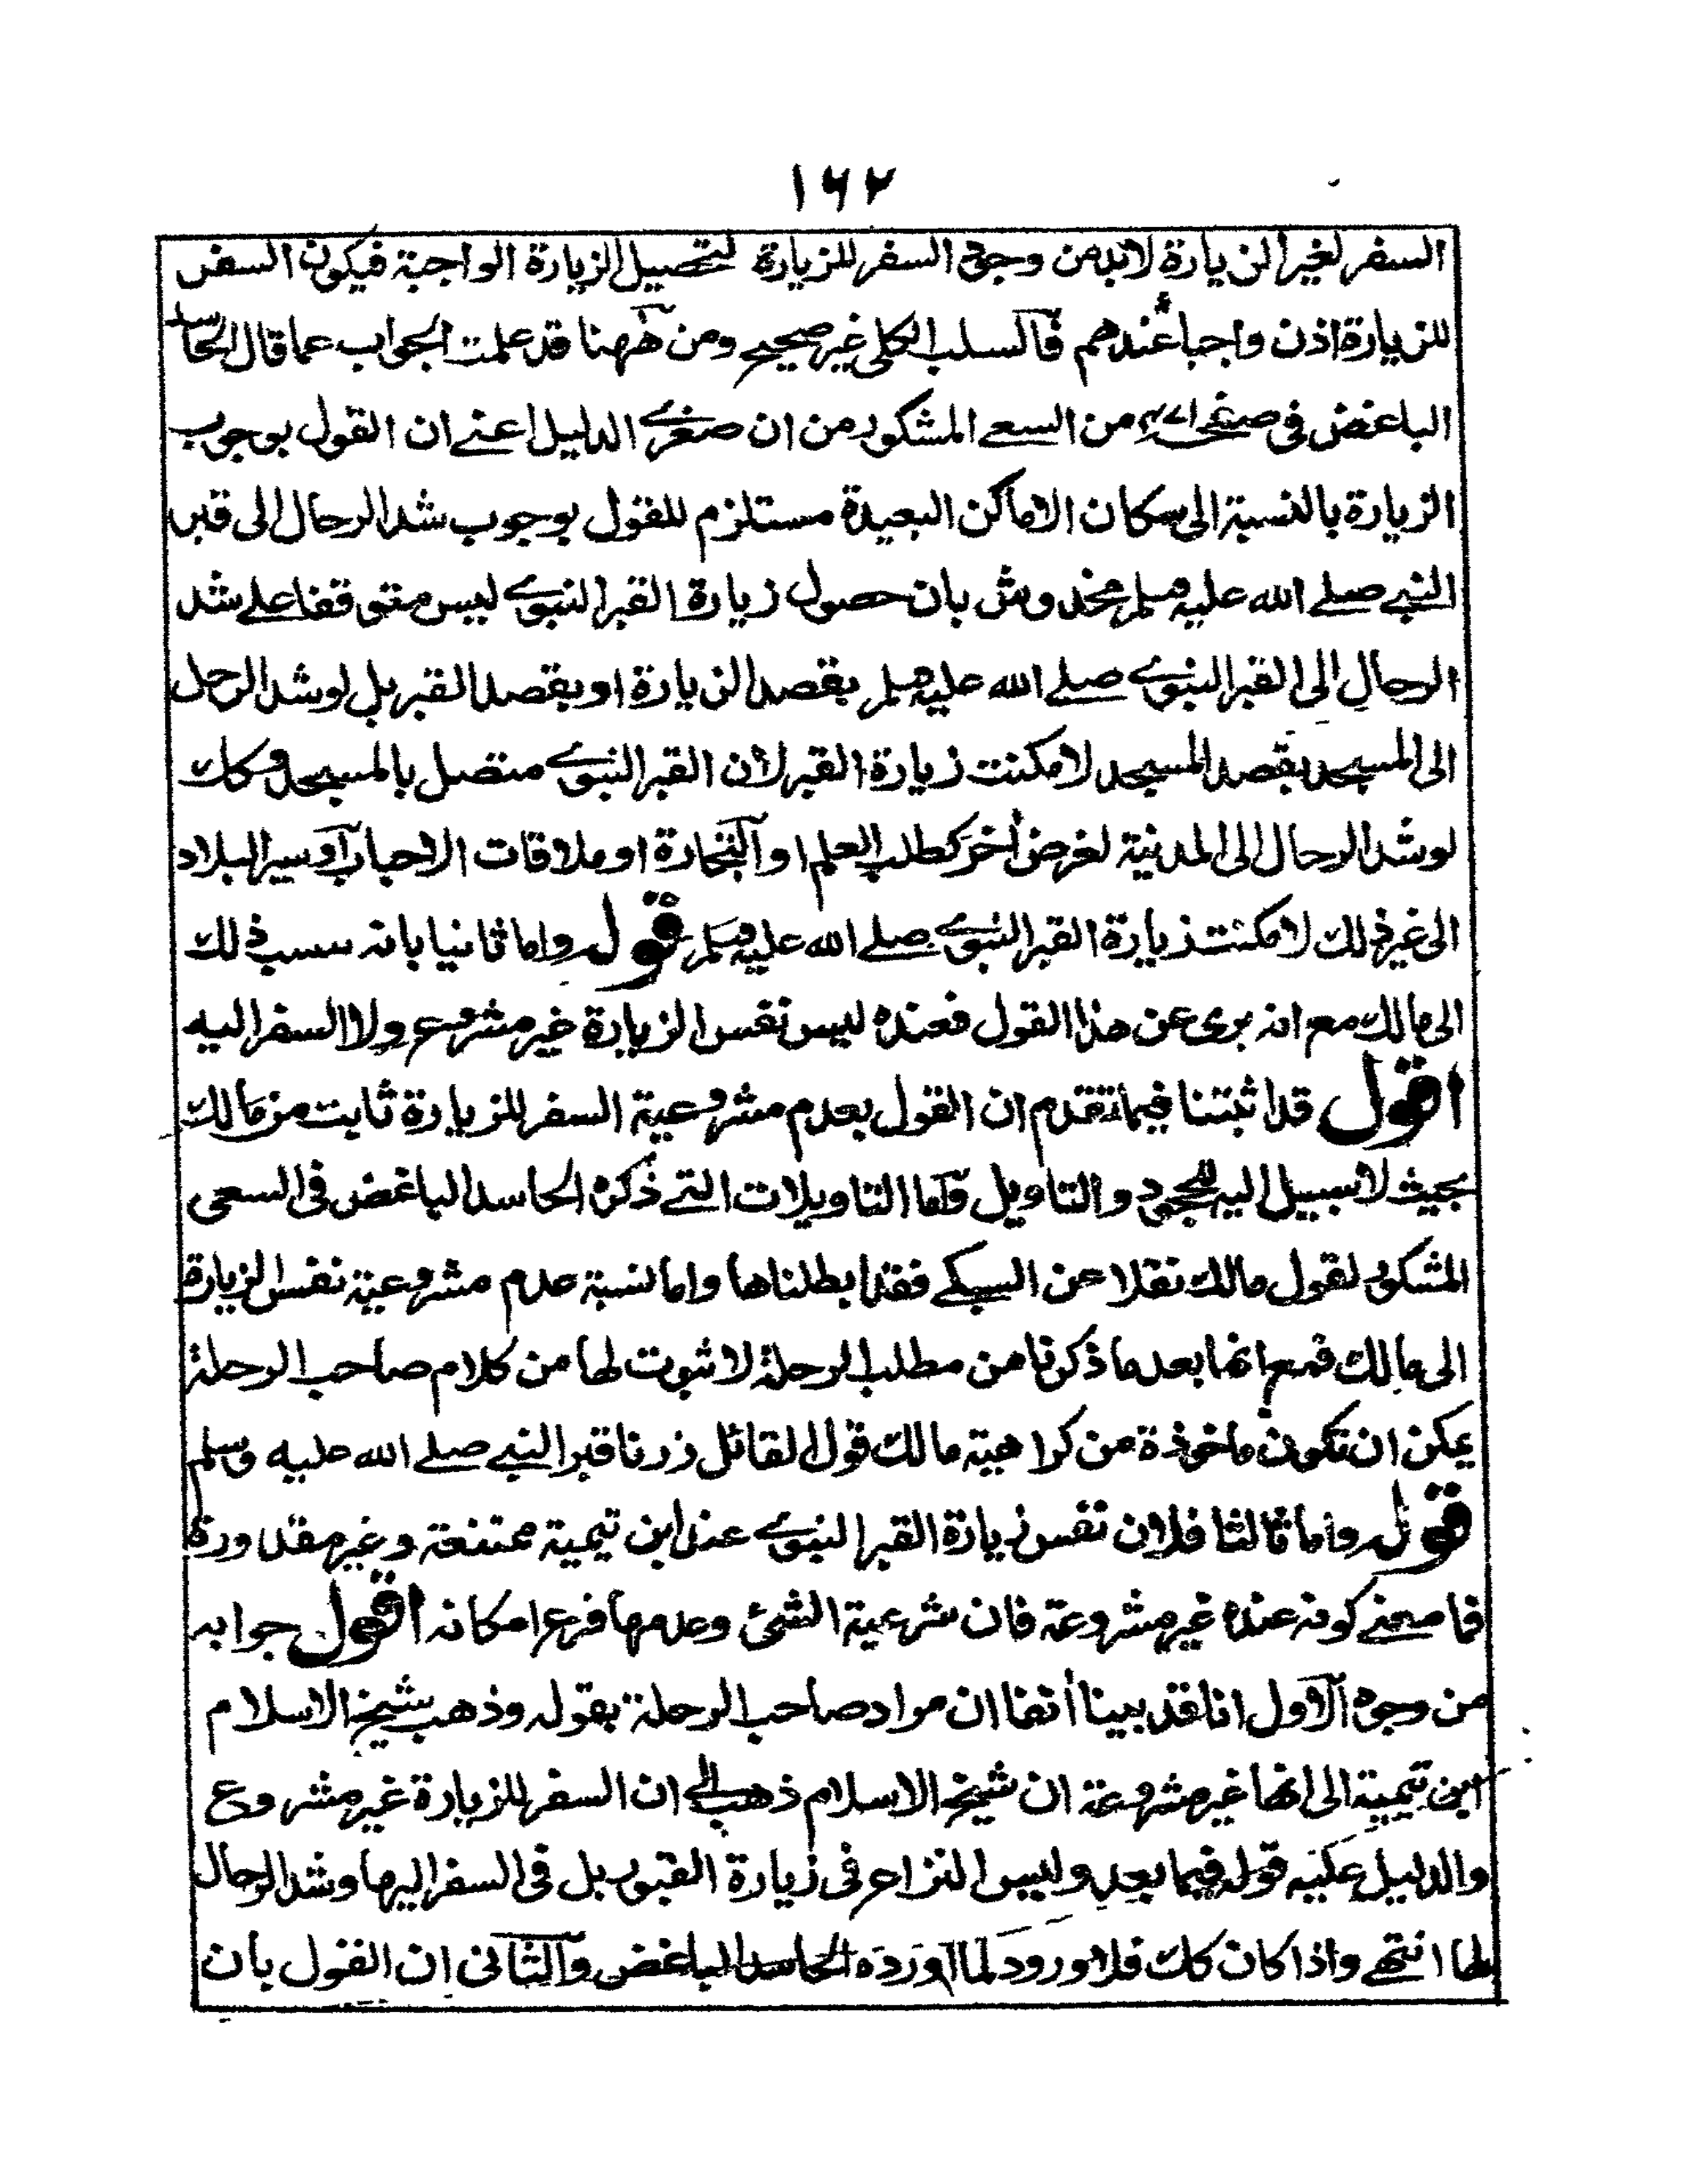 ١٦٢
السفر لغير الزيارة لابد من وجوه السفر للزيارة لتحصيل الزيارة الواجبة فيكون السفر
للزيارة اذن واجبا عندهم فالسلب الكلي غير صحيح ومن ههنا قد علمت الجواب عما قال الحاسد
الباغض فى صفحة من السعے المشكور من ان صغرے الدليل اعنے ان القول بوجوب
الزيارة بالنسبة الى سكان الاماكن البعيدة مستلزم للقول بوجوب شد الرحال الى قبر
النبے صلے الله عليه وسلم مخدوش بان حصول زيارة القبر النبوے ليس متوقفا علے شد
الرحال الى القبر النبوے صلے الله عليه وسلم بقصد الزيارة او بقصد القبر بل لو شد الرحل
الى المسجد بقصد المسجد لامكنت زيارة القبر لان القبر النبوے متصل بالمسجد وكك
لو شد الرحال الى المدنية لغرض أخر كطلب العلم او التجارة او ملاقات الاحباب او سير البلاد
الى غير ذلك لامكنت زيارة القبر النبوے صلے الله عليه وسلم قوله واما ثانيا بانه سبب ذلك
الى مالك مع انه برى عن هذا القول فعنده ليس نفس الزيارة غير مشروع ولا السفر اليه
اقول قد اثبتنا فيما تقدم ان القول بعدم مشروعية السفر للزيارة ثابت من مالك
بحيث لا سبيل اليه للجحود والتاويل واما التاويلات التے ذكره الحاسد الباغض فى السعى
المشكور لقول مالك نقلا عن السبكے فقد ابطلناها واما نسبة عدم مشروعية نفس الزيارة
الى مالك فمع انها بعد ما ذكرنا من مطلب الرحلة لا ثبوت لها من كلام صاحب الرحلة
يمكن ان تكون ماخوذة من كراهية مالك قول القائل زرنا قبر النبے صلے الله عليه وسلم
قوله واما ثالثا فلان نفس زيارة القبر النبوے عند ابن تيمية ممتنعة وغير مقدورة
فما معنے كونه عنده غير مشروعة فان شرعية الشئ وعدمها فرع امكانه اقول جوابه
من وجوه الاول انا قد بينا أنفا ان مراد صاحب الرحلة بقوله وذهب شيخ الاسلام
ابن تيمية الى انها غير مشروعة ان شيخ الاسلام ذهب الے ان السفر للزيارة غير مشروع
والدليل عليه قوله فيما بعد وليس النزاع فى زيارة القبور بل فى السفر اليها وشد الرحال
لها انتهے واذا كان كك فلا ورود لما اورده الحاسد الباغض والثانى ان القول بان